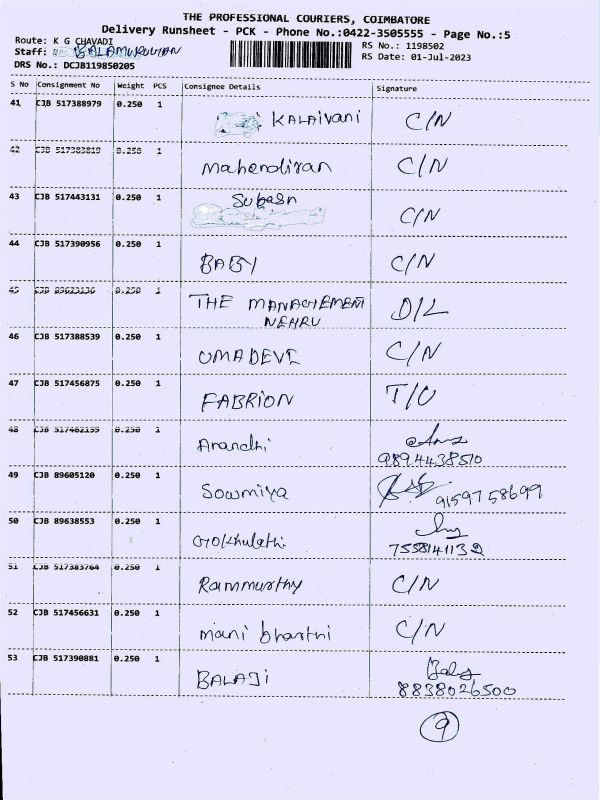 THE PROFESSIONAL COURIERS, COIMBATORE
Delivery Runsheet - PCK - Phone No.:0422-3505555 - Page No.:5
Route: K G CHAVADI
RS No.: 1198502
Staff: BALAMURUGAN
RS Date: 01-Jul-2023
DRS No.: DCJB119850205
S No Consignment No Weight PCS Consignee Details Signature
41 CJB 517388979 0.250 1 KALAIVANI C/N
42 CJB 0.250 1 Mahendiran C/N
43 CJB 517443131 0.250 1 Subash C/N
44 CJB 517390956 0.250 1 BABY C/N
45 CJB 0.250 1 THE MANAGEMENT D/L
NEHRU
46 CJB 517388539 0.250 1 UMADEVI C/N
47 CJB 517456875 0.250 1 FABRION T/O
48 CJB 0.250 1 Anandhi
9894438510
49 CJB 89605120 0.250 1 Sowmiya 9159758699
50 CJB 89638553 0.250 1 Gokhulathi
7558141132
51 CJB 517383764 0.250 1 Rammurthy C/N
52 CJB 517456631 0.250 1 mani bharthi C/N
53 CJB 517390881 0.250 1 BALAJI Balaji
8838026500
9